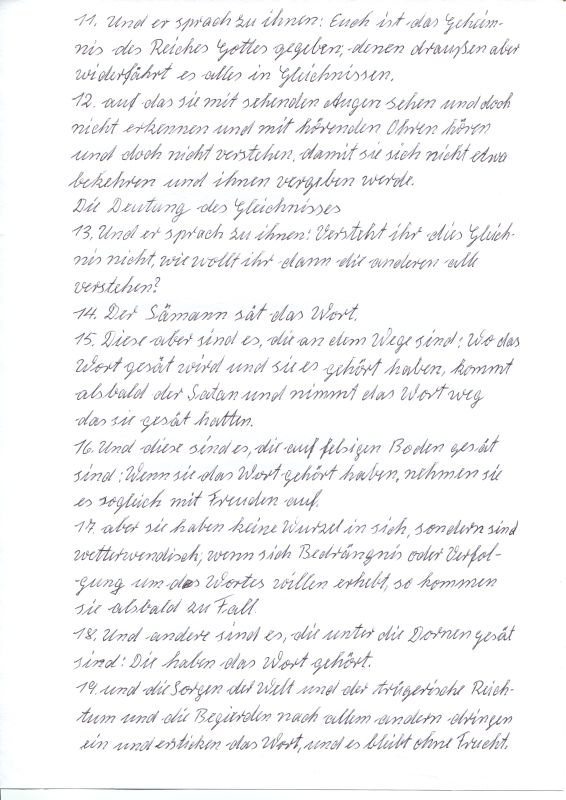 11. Und er sprach zu ihnen: Euch ist das Geheim-
nis des Reiches Gottes gegeben; denen draußen aber
widerfährt es alles in Gleichnissen.
12. auf das sie mit sehenden Augen sehen und doch
nicht erkennen und mit hörenden Ohren hören
und doch nicht verstehen, damit sie sich nicht etwa
bekehren und ihnen vergeben werde.
Die Deutung des Gleichnisses
13. Und er sprach zu ihnen: Versteht ihr dies Gleich-
nis nicht, wie wollt ihr dann die anderen alle
verstehen?
14. Der Sämann sät das Wort.
15. Diese aber sind es, die an dem Wege sind: Wo das
Wort gesät wird und sie es gehört haben, kommt
alsbald der Satan und nimmt das Wort weg
das sie gesät hatten.
16. Und diese sind es, die auf felsigen Boden gesät
sind: Wenn sie das Wort gehört haben, nehmen sie
es sogleich mit Freuden auf.
17. aber sie haben keine Wurzel in sich, sondern sind
wetterwendisch; wenn sich Bedrängnis oder Verfol-
gung um des Wortes willen erhebt, so kommen
sie alsbald zu Fall.
18. Und andere sind es, die unter die Dornen gesät
sind: Die haben das Wort gehört.
19. und die Sorgen der Welt und der trügerische Reich-
tum und die Begierden nach allem andern dringen
ein und ersticken das Wort, und es bleibt ohne Frucht.